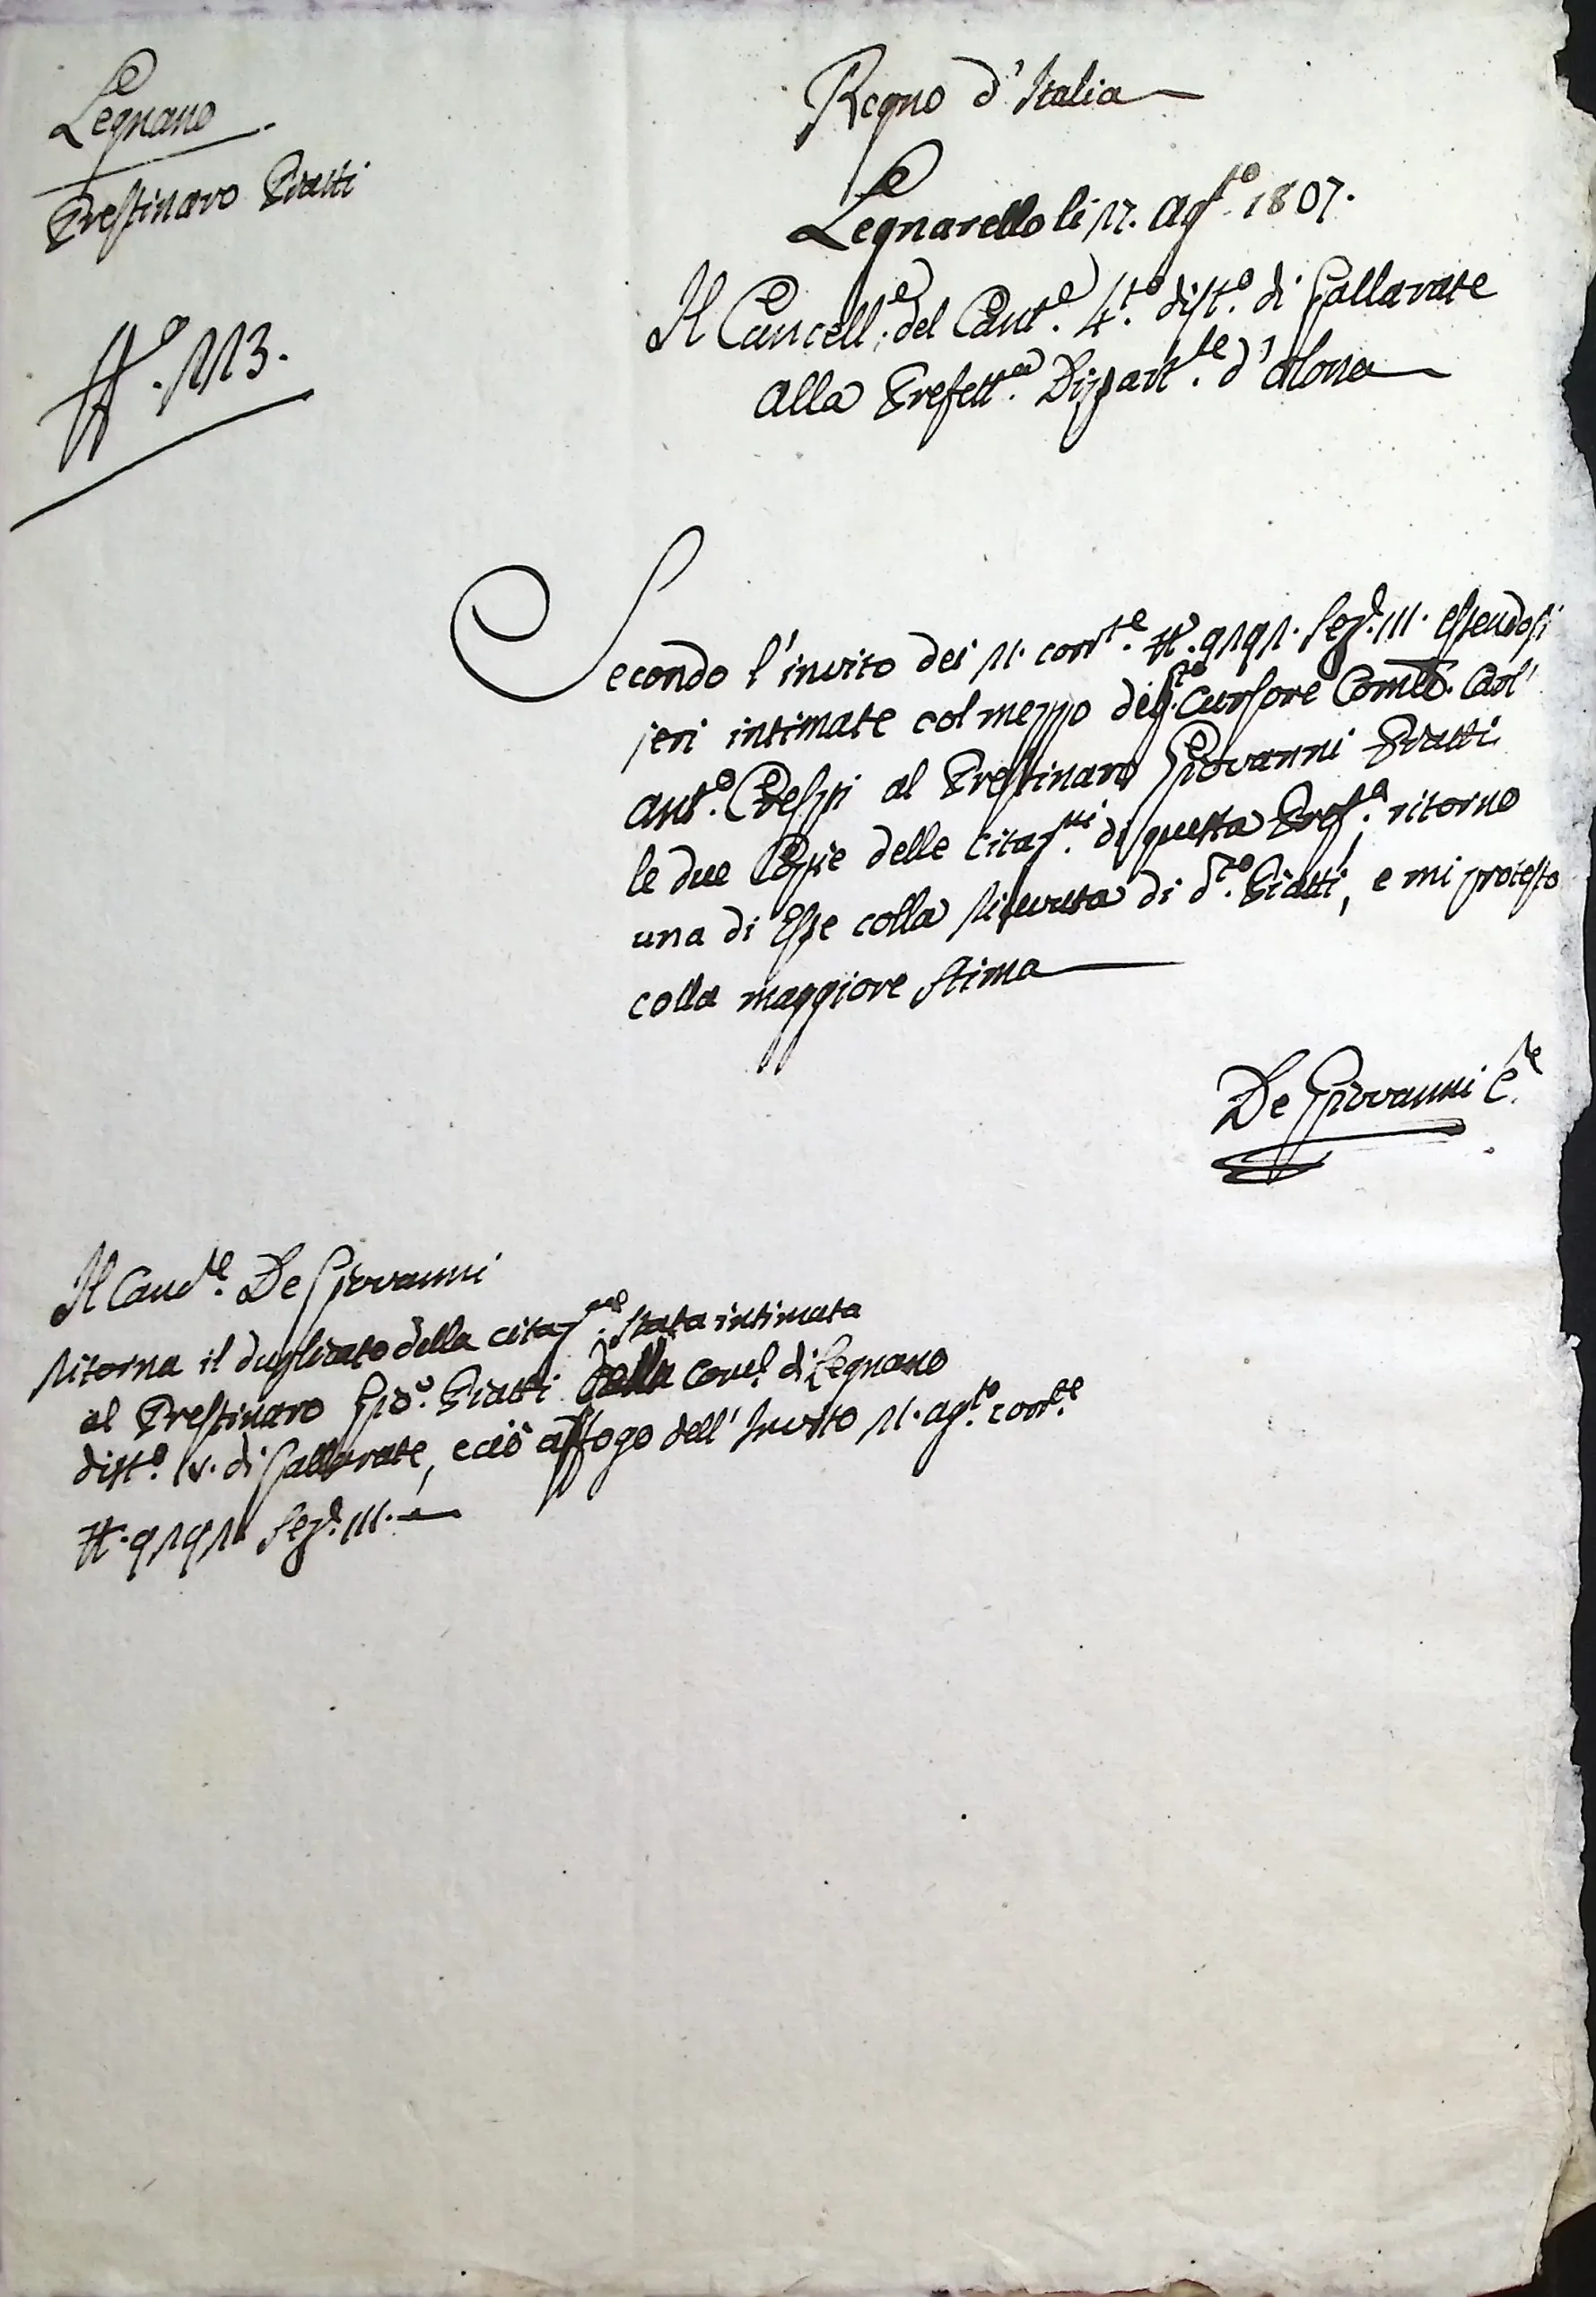 Legnano
Prestinaro Piatti
N.º 1113.
Regno d'Italia
Legnarello li 17. Ag.to 1807.
Il Cancell.e del Cant.e 4.to dist.o di Gallarate
Alla Prefett.a Dipart.le d'Olona
Secondo l'invito dei 11. corr.te N. 9191. Sez.e III. essendosi
jeri intimate col mezzo del Cursore Com.e Carl'
Ant.o Crespi al Prestinaro Giovanni Piatti
le due Copie delle citaz.ni di questa Pref.a, ritorno
una di Esse colla ricevuta di d.to Piatti, e mi protesto
colla maggiore stima
De Giovanni C.re
Il Canc.re De Giovanni
ritorna il duplicato della citaz.ne stata intimata
al Prestinaro Gio. Piatti della Com.e di Legnano
dist.o IV. di Gallarate, e ciò a sfogo dell'Invito 11. ag.to corr.te
N. 9191 Sez.e III.